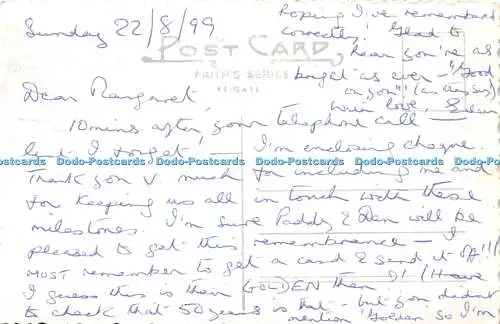 Sunday 22/8/99
POST CARD
FRITH'S SERIES
REIGATE
Dear Margaret,
10 mins after your telephone call —
lest I forget! — I'm enclosing cheque.
Dodo-Postcards Dodo-Postcards Dodo-Postcards Dodo-Postcards Dodo-Postcards
Thank you v. much for including me and
for keeping us all in touch with these
milestones. I'm sure Paddy & Den will be
pleased to get this remembrance — I
MUST remember to get a card & send it off!!!
I guess this is their GOLDEN then O! (Have
to check that 50 years is that - but you didn't
mention 'Golden' so I'm
hoping I've remembered
correctly! Glad to
hear you're as
bright as ever - "Good
on you"! (as they say)
With love,